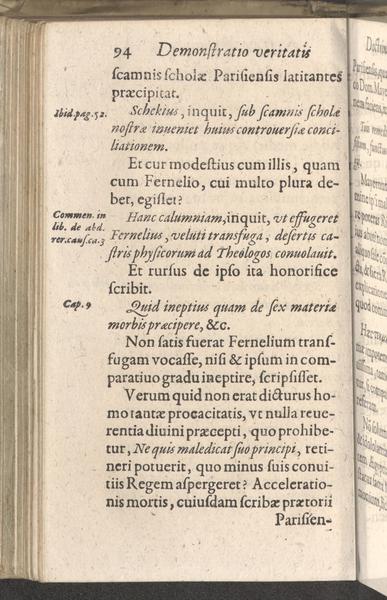 94 Demonſtratio veritatis
ſcamnis ſcholæ Pariſienſis latitantes
præcipitat.
Ibid.pag.52.
Schekius, inquit, ſub ſcamnis ſcholæ
noſtræ inueniet huius controuerſiæ conci-
liationem.
Et cur modeſtius cum illis, quam
cum Fernelio, cui multo plura de-
bet, egiſſet?
Commen. in
lib. de abd.
rer.cauſ.ca.3
Hanc calumniam, inquit, vt effugeret
Fernelius, veluti transfuga, deſertis ca-
ſtris phyſicorum ad Theologos conuolauit.
Et rurſus de ipſo ita honorifice
ſcribit.
Cap. 9
Quid ineptius quam de ſex materiæ
morbis præcipere, &c.
Non ſatis fuerat Fernelium tranſ-
fugam vocaſſe, niſi & ipſum in com-
paratiuo gradu ineptire, ſcripſiſſet.
Verum quid non erat dicturus ho-
mo tantæ procacitatis, vt nulla reue-
rentia diuini præcepti, quo prohibe-
tur, Ne quis maledicat ſuo principi, reti-
neri potuerit, quo minus ſuis conui-
tiis Regem aſpergeret? Acceleratio-
nis mortis, cuiuſdam ſcribæ prætorii
Pariſien-